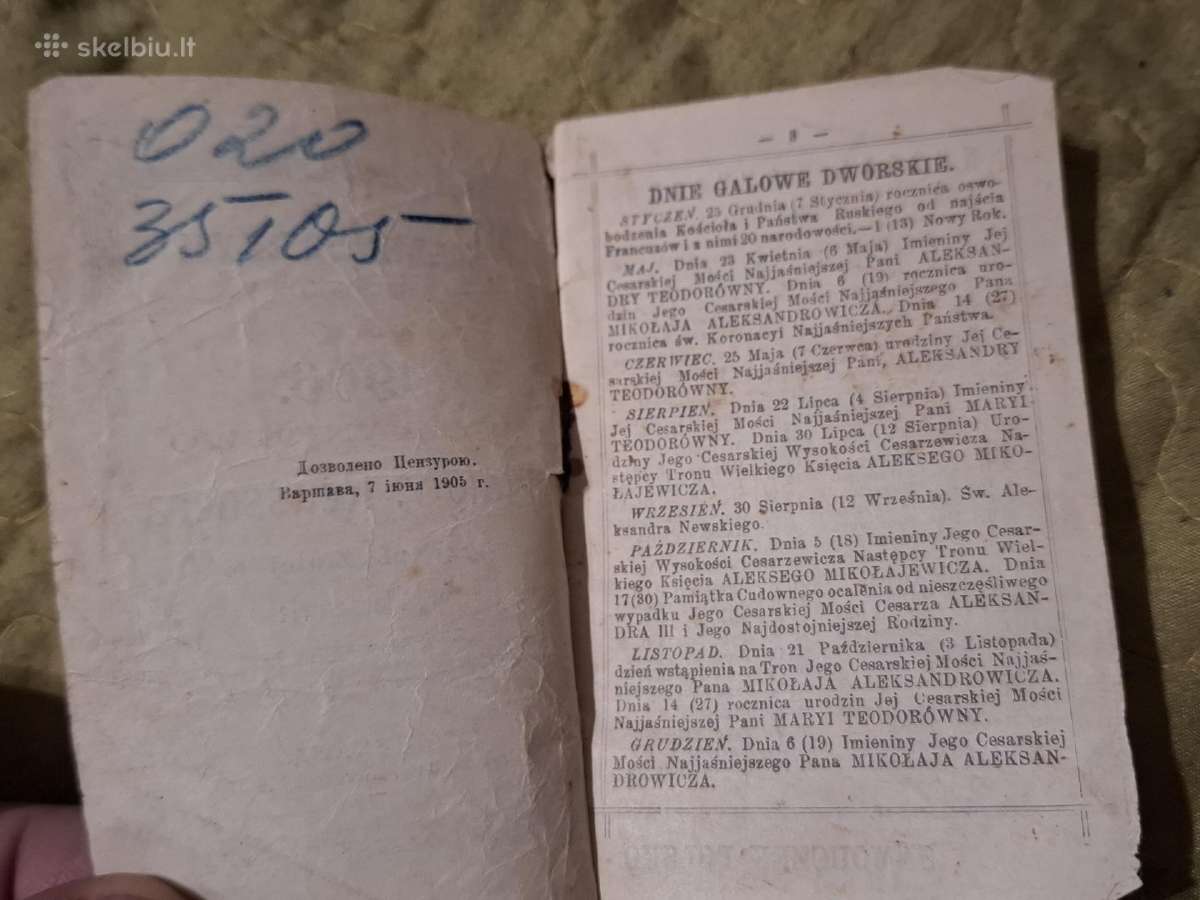 skelbiu.lt
020
Дозволено Цензурою.
Варшава, 7 іюня 1905 г.
— 3 —
DNIE GALOWE DWORSKIE.
STYCZEŃ. 25 Grudnia (7 Stycznia) rocznica oswo-
bodzenia Kościoła i Państwa Ruskiego od najścia
Francuzów i z nimi 20 narodowości.—1 (13) Nowy Rok.
MAJ. Dnia 23 Kwietnia (6 Maja) Imieniny Jej
Cesarskiej Mości Najjaśniejszej Pani ALEKSAN-
DRY TEODORÓWNY. Dnia 6 (19) rocznica uro-
dzin Jego Cesarskiej Mości Najjaśniejszego Pana
MIKOŁAJA ALEKSANDROWICZA. Dnia 14 (27)
rocznica św. Koronacyi Najjaśniejszych Państwa.
CZERWIEC. 25 Maja (7 Czerwca) urodziny Jej Ce-
sarskiej Mości Najjaśniejszej Pani, ALEKSANDRY
TEODORÓWNY.
SIERPIEŃ. Dnia 22 Lipca (4 Sierpnia) Imieniny
Jej Cesarskiej Mości Najjaśniejszej Pani MARYI
TEODORÓWNY. Dnia 30 Lipca (12 Sierpnia) Uro-
dziny Jego Cesarskiej Wysokości Cesarzewicza Na-
stępcy Tronu Wielkiego Księcia ALEKSEGO MIKO-
ŁAJEWICZA.
WRZESIEŃ. 30 Sierpnia (12 Września). Św. Ale-
ksandra Newskiego.
PAŹDZIERNIK. Dnia 5 (18) Imieniny Jego Cesar-
skiej Wysokości Cesarzewicza Następcy Tronu Wiel-
kiego Księcia ALEKSEGO MIKOŁAJEWICZA. Dnia
17(30) Pamiątka Cudownego ocalenia od nieszczęśliwego
wypadku Jego Cesarskiej Mości Cesarza ALEKSAN-
DRA III i Jego Najdostojniejszej Rodziny.
LISTOPAD. Dnia 21 Października (3 Listopada)
dzień wstąpienia na Tron Jego Cesarskiej Mości Najjaś-
niejszego Pana MIKOŁAJA ALEKSANDROWICZA.
Dnia 14 (27) rocznica urodzin Jej Cesarskiej Mości
Najjaśniejszej Pani MARYI TEODORÓWNY.
GRUDZIEŃ. Dnia 6 (19) Imieniny Jego Cesarskiej
Mości Najjaśniejszego Pana MIKOŁAJA ALEKSAN-
DROWICZA.